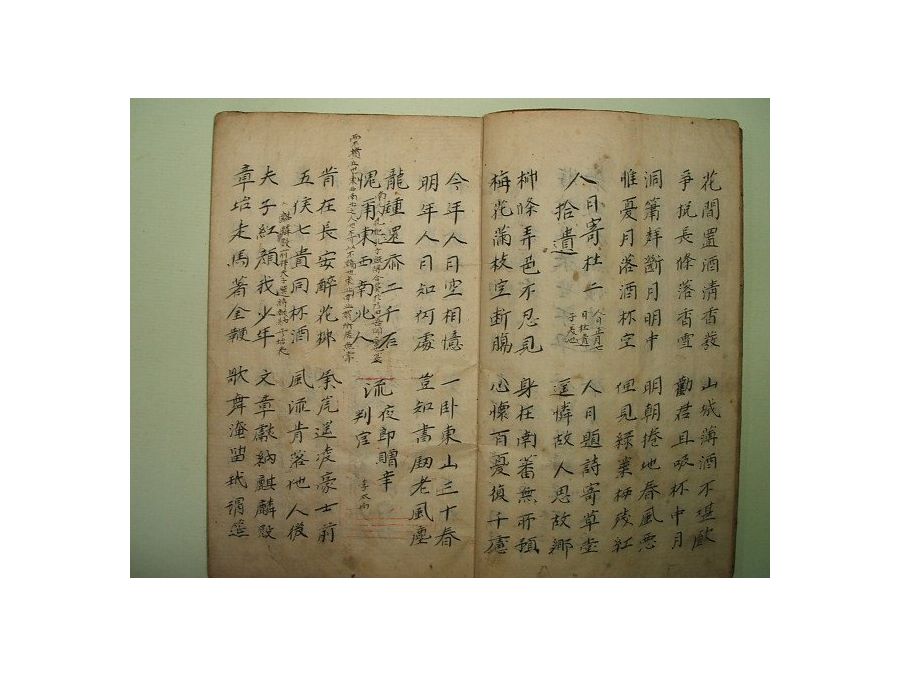 花間置酒清香發
爭挽長條落香雪
山城薄酒不堪飲
勸君且吸杯中月
洞簫聲斷月明中
惟憂月落酒杯空
明朝捲地春風惡
但見綠葉棲殘紅
人日寄杜二
拾遺
人日正月七
人日題詩寄草堂
遙憐故人思故鄉
柳條弄色不忍見
梅花滿枝空斷腸
身在南蕃無所預
心懷百憂復千慮
今年人日空相憶
明年人日知何處
一臥東山三十春
豈知書劒老風塵
龍鍾還忝二千石
愧爾東西南北人
流夜郎贈辛
判官
李太白
昔在長安醉花柳
五侯七貴同杯酒
氣岸遙凌豪士前
風流肯落他人後
夫子紅顏我少年
章坮走馬著金鞭
文章獻納麒麟殿
歌舞淹留玳瑁筵